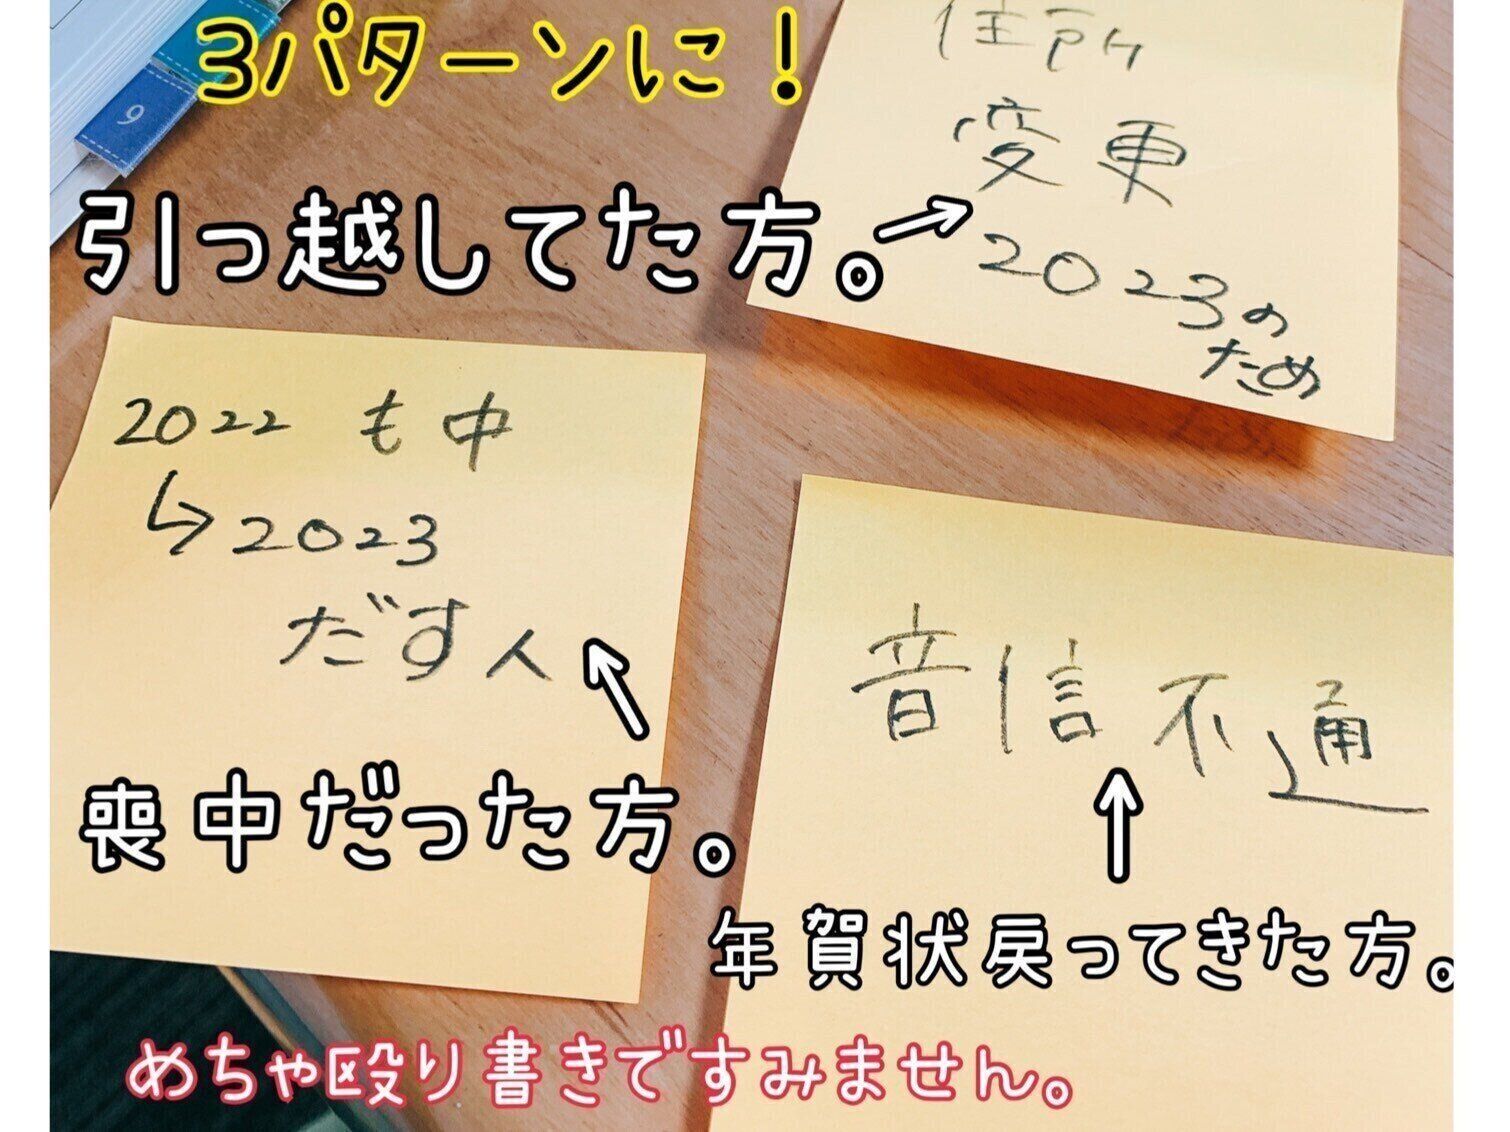 3パターンに!
9
住所
変更
2023の
ため
引っ越してた方。→
2022 も中
↳2023
だす人
喪中だった方。
音信不通
年賀状戻ってきた方。
めちゃ殴り書きですみません。